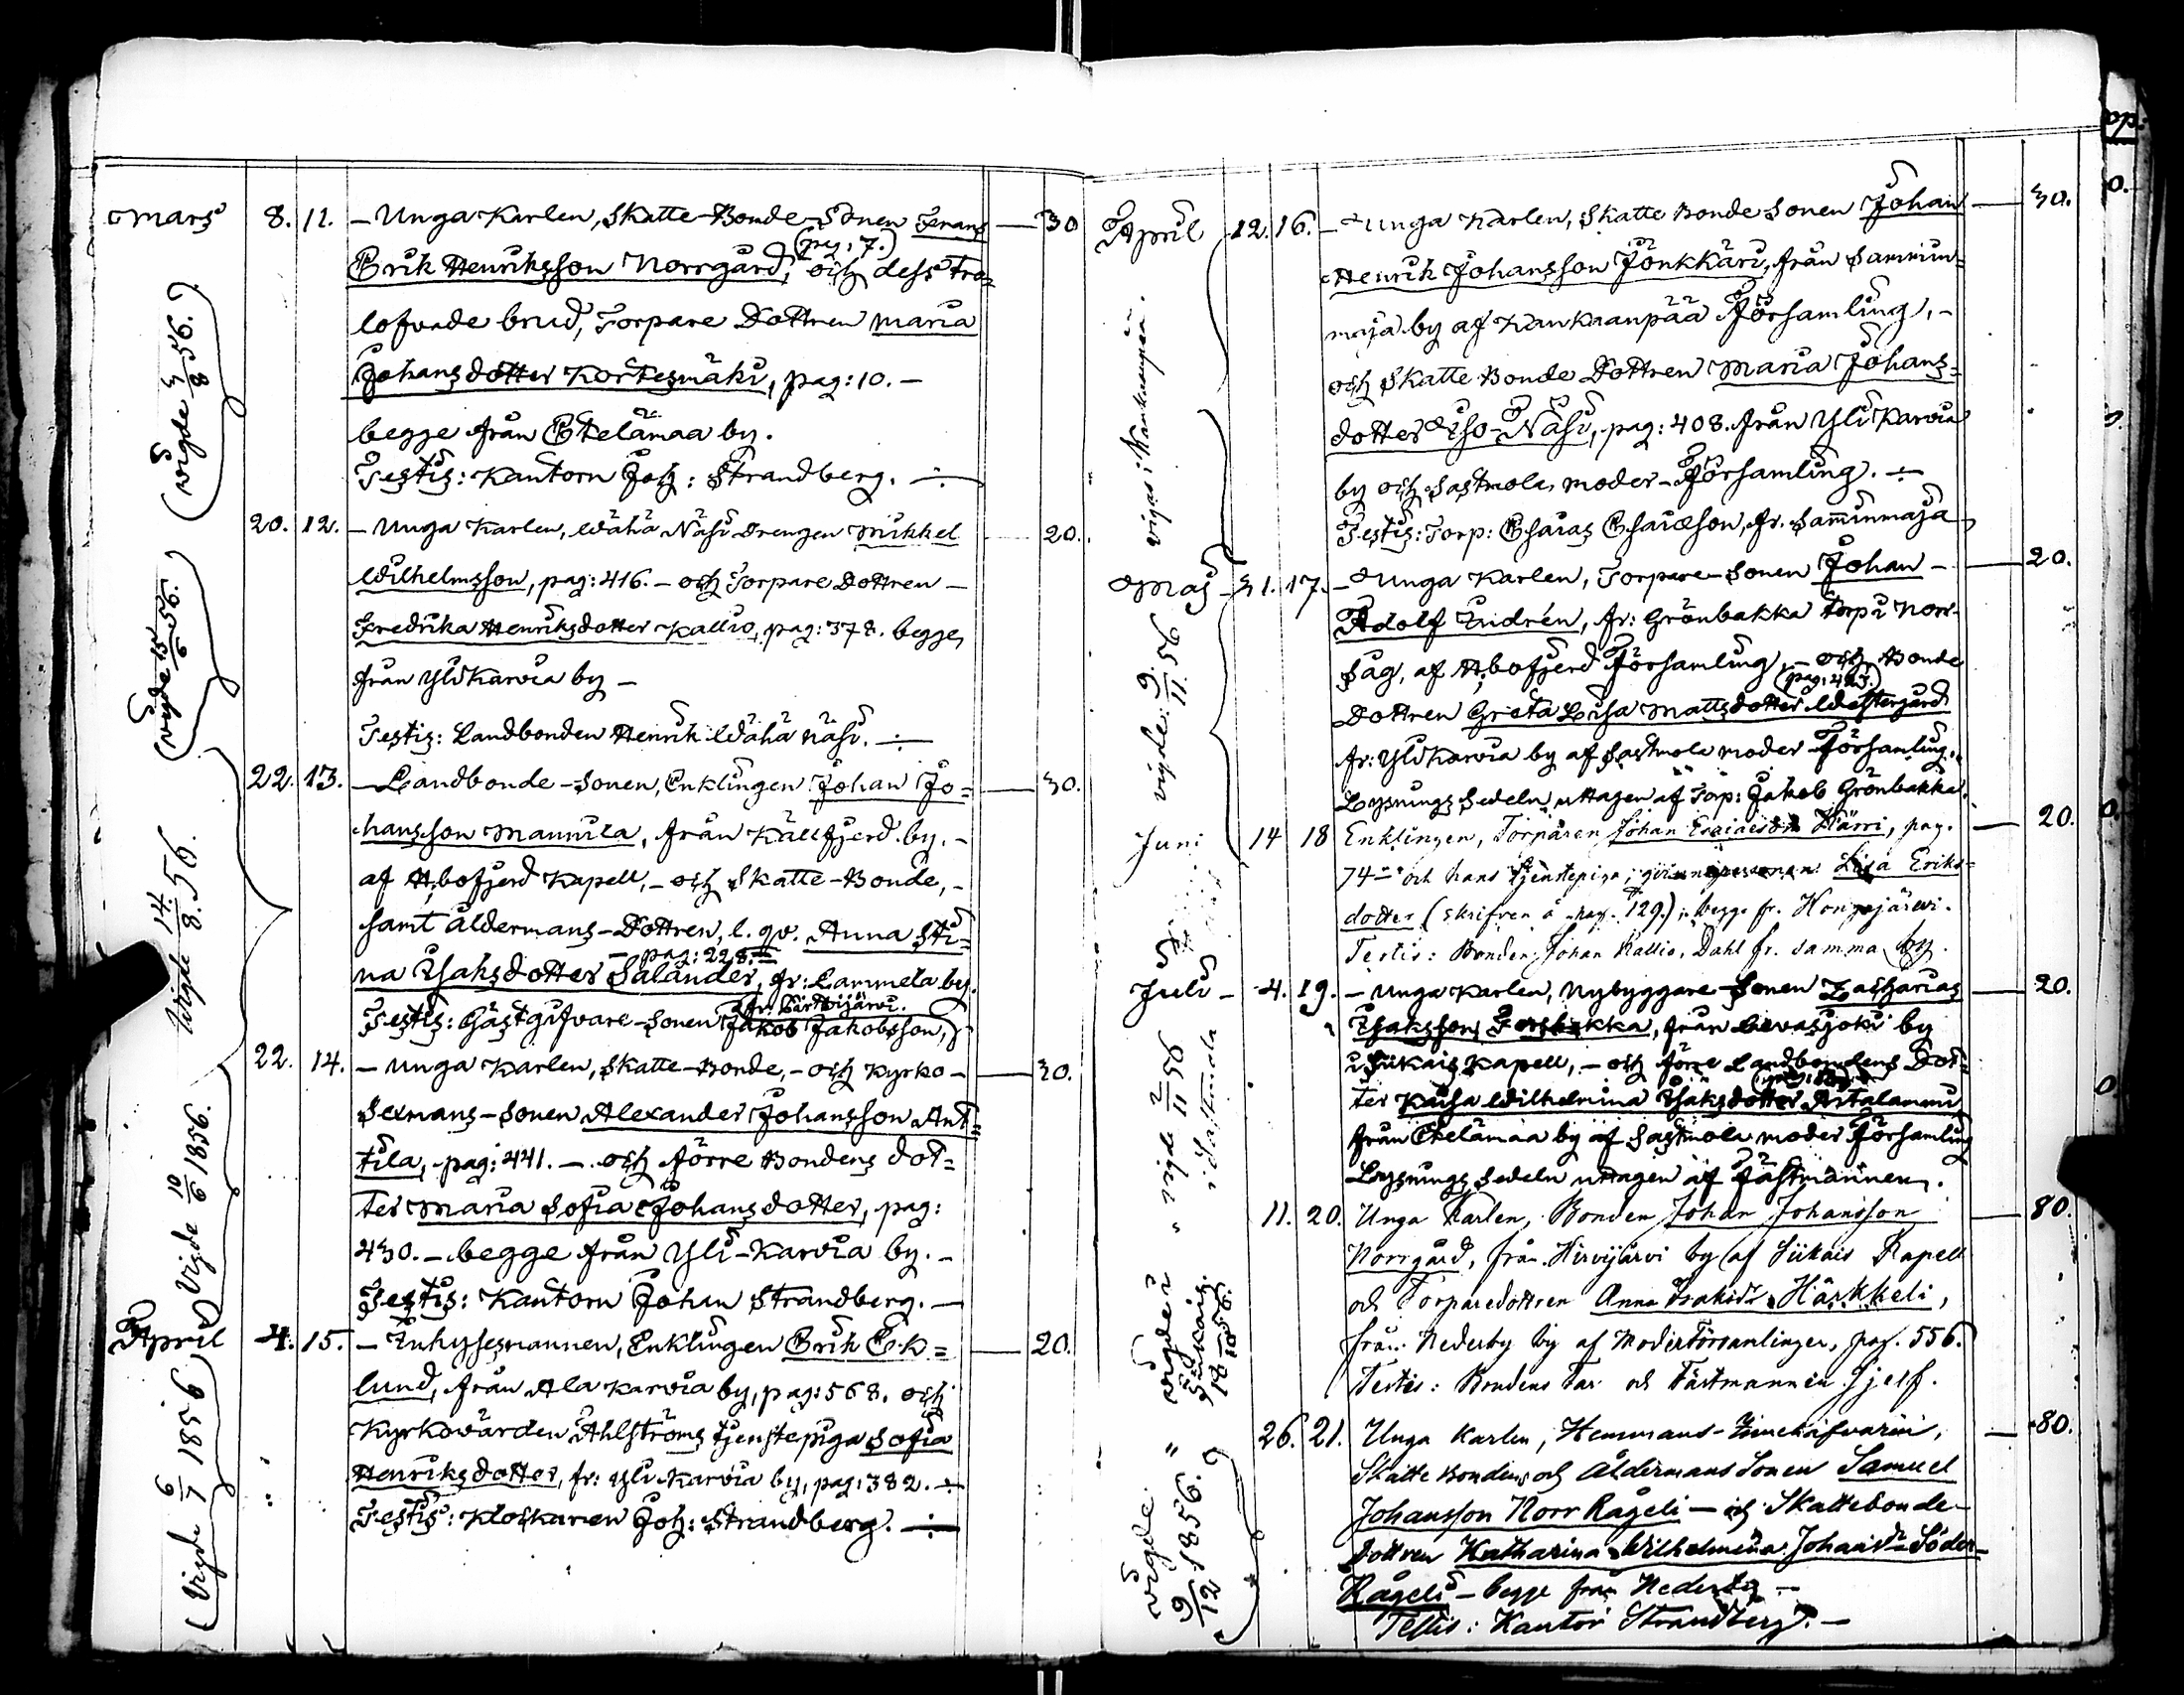 Mars 8. 11. – Unga Karlen, Skatte-Bonde-Sonen Frans — 30
Erik Henriksson Norrgård, (pag: 7.) och dess tro=
lofvade brud, Torpare Dottren Maria
Johansdotter Kortesmäki, pag: 10. –
begge från Etelämaa by.
Testis: Kantorn Joh: Strandberg. ÷
(vigde 3/8 56.)
20. 12. – Unga Karlen, Wähä Näsi Drengen Mikkel — 20.
Wilhelmsson, pag: 416. – och Torpare Dottren –
Fredrika Henriksdotter Kallio, pag: 378. begge,
från Yli Karvia by –
Testis: Landbonden Henrik Wähä näsi. ÷
(vigde 15/6 56.)
22. 13. – Landbonde-Sonen, Enklingen Johan Jo= — 30.
hansson Mannila, från Källfjerd by. –
af Hbofjerd Kapell, – och Skatte-Bonde, –
samt åldermans-Dottren, l. qv. Anna Sti=
– pag: 228. –
na Isaksdotter Salander, fr: Lammela by.
fr. Lärttijärvi.
Testis: Gästgifvare-Sonen Jakob Jakobsson,
Vigde 14/8. 56.
22. 14. – Unga Karlen, Skatte-Bonde, – och Kyrko – — 30.
Sexmans-Sonen Alexander Johansson Ant=
tila, pag: 441. – och förre Bondens dot=
ter Maria Sofia Johansdotter, pag:
430. – begge från Yli-Karvia by. –
Testis: Kantorn Johan Strandberg. –
Vigde 10/6 1856.
April 4. 15. – Inhysesmannen, Enklingen Erik Ek= — 20.
lund, från Ala Karvia by, pag: 568. och
Kyrkovärden Ahlströms tjenstepiga Sofia
Henriksdotter, fr: Yli Karvia by, pag: 382. ÷
Testis: Klockaren Joh: Strandberg. ÷
Vigde 6/7 1856
April 12. 16. – Unga Karlen, Skatte Bonde Sonen Johan — 30.
Henrik Johansson Jönkkäri, från Sammin=
maja by af Kankaanpää Församling, –
och Skatte Bonde Dottren Maria Johans=
dotter Iso-Näsi, pag: 408. från Yli Karvia
by och Sastmola moder-Församling. ÷
Testis: Torp: Esaias Esaiæson, fr. Samminmaja
vigas i Kankaanpää.
Maj 31. 17. – Unga Karlen, Torpare-Sonen Johan – — 20.
Adolf Indrén, fr: Grönbakka torp i Norr-
Såg, af Hbofjerd Församling, – och Bonde
(pag: 423.)
Dottren Greta Lisa Mattsdotter Westergård
fr: Yli Karvia by af Sastmola moder Församling.
Lysnings Sedeln uttagen af Torp: Jakob Grönbakka.
vigde: 9./11. 56
Juni 14 18 Enklingen, Torparen Johan Esaiæson Härri, pag. — 20.
74 och hans tjenstepiga, Lisa Eriks=
dotter (skrifven å pag. 129.) begge fr. Hongojärvi.
Testis: Bonden Johan Kallio, Dahl fr. samma by.
Juli – 4. 19. – Unga Karlen, Nybyggare-Sonen Zacharias — 20.
Isaksson Forsbakka, från Levasjoki by
i Siikais Kapell, – och förre Landbondens Dot=
ter Kaisa Wilhelmina Isaksdotter Artalammi
från Etelämaa by af Sastmola moder Församling
Lysnings Sedeln uttagen af Fästmannen.
" vigde 2/11 56
i Sastmola
11. 20. Unga Karlen, Bonden Johan Johansson — 80.
Norrgård, från Hirvijärvi by af Siikais Kapell
och Torparedottren Anna Isaksdr Härkkeli,
från Nederby by af Moderförsamlingen, pag. 556.
Testis: Bondens Far och Fästmannen Sjelf.
" vigden i
Siikais.
18/10 56.
26. 21. Unga Karlen, Hemmans-Innehafvaren, — 80.
Skatte Bondens och Åldermans Sonen Samuel
Johansson Norr Rågeli – och Skattebonde-
dottren Katharina Wilhelmina Johansdr Söder-
Rågeli – begge från Nederby –
Testis: Kantor Strandberg. –
vigde.
9/12 1856.